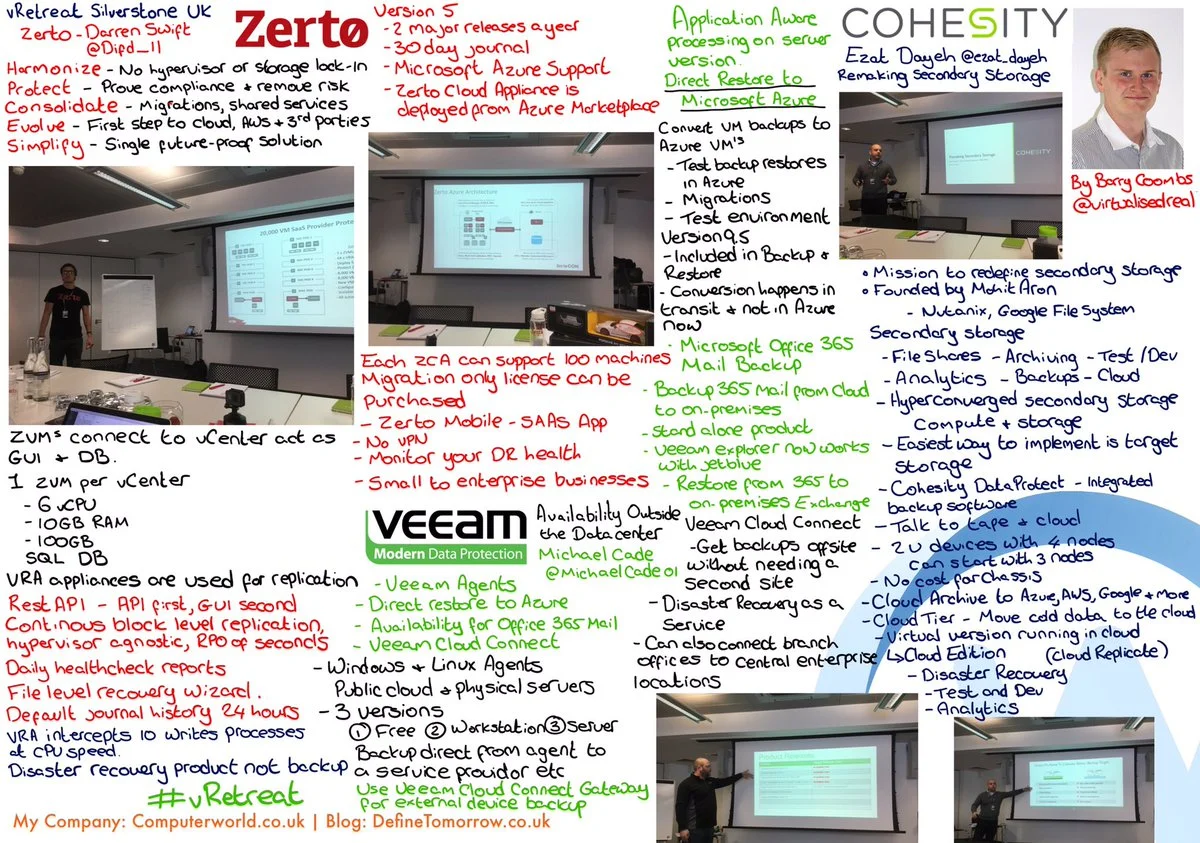 vRetreat Silverstone UK
Zerto - Darren Swift
@Difd_11
Zertø
Harmonize - No hypervisor or storage lock-In
Protect - Prove compliance + remove risk
Consolidate - Migrations, shared services
Evolve - First step to cloud, AWS + 3rd parties
Simplify - Single future-proof solution
20,000 VM SaaS Provider Prote
Zerto
ZVMs connect to vCenter act as
GUI + DB.
1 ZVM per vCenter
- 6 vCPU
- 10GB RAM
- 100GB
SQL DB
VRA appliances are used for replication
Rest API - API first, GUI second
Continous block level replication,
hypervisor agnostic, RPO of seconds
Daily healthcheck reports
File level recovery wizard.
Default journal history 24 hours
VRA intercepts IO writes processes
at CPU speed.
Disaster recovery product not backup
#vRetreat
My Company: Computerworld.co.uk | Blog: DefineTomorrow.co.uk
Version 5
- 2 major releases a year
- 30 day journal
- Microsoft Azure Support
- Zerto Cloud Appliance is
deployed from Azure Marketplace
Zerto Azure Architecture
Each ZCA can support 100 machines
Migration only license can be
purchased
- Zerto Mobile - SAAS App
- No VPN
- Monitor your DR health
- Small to enterprise businesses
veeam
Modern Data Protection
Availability Outside
the Datacenter
Michael Cade
@MichaelCade01
- Veeam Agents
- Direct restore to Azure
- Availability for Office 365 Mail
- Veeam Cloud Connect
- Windows + Linux Agents
Public cloud + physical servers
- 3 versions
① Free ② Workstation ③ Server
Backup direct from agent to
a service providor etc
Use Veeam Cloud Connect Gateway
for external device backup
Application Aware
processing on server
version.
Direct Restore to
Microsoft Azure
Convert VM backups to
Azure VM's
- Test backup restores
in Azure
- Migrations
- Test environment
Version 9.5
- Included in Backup +
Restore
- Conversion happens in
transit + not in Azure
now
- Microsoft Office 365
Mail Backup
- Backup 365 Mail from Cloud
to on-premises
- Stand alone product
- Veeam explorer now works
with jetblue
- Restore from 365 to
on-premises Exchange
Veeam Cloud Connect
- Get backups offsite
without needing a
second site
- Disaster Recovery as a
Service
- Can also connect branch
offices to central enterprise
locations
COHESITY
Ezat Dayeh @ezat_dayeh
Remaking Secondary Storage
COHESITY
By Barry Coombs
@virtualisedreal
Mission to redefine secondary storage
Founded by Mohit Aron
- Nutanix, Google File System
Secondary storage
- File Shares - Archiving - Test / Dev
- Analytics - Backups - Cloud
- Hyperconverged secondary storage
Compute + storage
- Easiest way to implement is target
storage
- Cohesity DataProtect - Integrated
backup software
- Talk to tape + cloud
- 2U devices with 4 nodes
can start with 3 nodes
- No cost for chassis
- Cloud Archive to Azure, AWS, Google + More
- Cloud Tier - Move cold data to the cloud
- Virtual version running in cloud
↳ Cloud Edition (cloud Replicate)
- Disaster Recovery
- Test and Dev
- Analytics